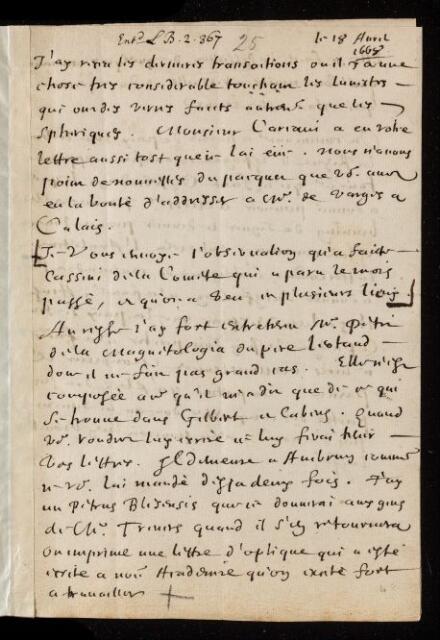 Entd LB. 2. 367 25 le 18 Avril
1668
J'ay receu les dernieres transactions ou il y a une
chose tres considerable touchant les lunettes
qui ont des verres faicts autrem que les
spheriques. Monsieur a eu votre
lettre aussi tost que ie lai eüe. nous n'avons
point de nouvelles du pacquet que vo. aues
eu la bonté d'addresser a Mr. de Varges a
Calais.
Je Vous envoye l'observation qu'a faite
Cassini de la Comete qui a paru le mois
passé, et qu'on a veu en plusieurs lieux.
Au reste i'ay fort entretenu Mr. Petit
de la Magnetologia du pere
dont il ne fait pas grand cas. Elle n'est
composée a ce qu'il m'a dit que de ce qui
se trouue dans Gilbert et Cabeus. Quand
vo. voudrez luy escrire ie luy feray tenir
vos lettres. Il demeure a comme
ie vo. lai mandé desja deux fois. J'ay
un Petrus Blesensis que ie donnerai aux gens
de Mr. quand il s'en retournera
On imprime une lettre d'optique qui a esté
escrite a notre Academie qu'on exite fort
a travailler +